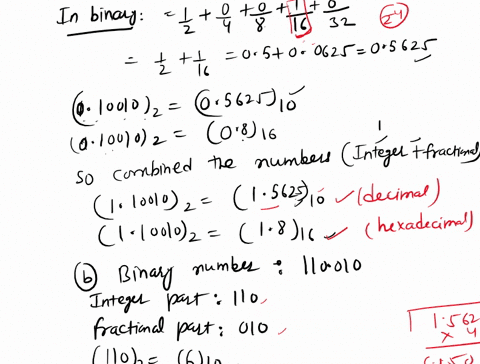 In binary: = 1/2 + 0/4 + 0/8 + 1/16 + 0/32 24
= 1/2 + 1/16 = 0.5+0.0625=0.5625
(0.10010)2 = (0.5625)10
(0.10010)2 = (0.8)16
So combined the numbers (Integer + fractional)
(1.10010)2 = (1.5625)10 ✓(decimal)
(1.10010)2 = (1.8)16 ✓ (hexadecimal)
(b) Binary number : 110.010
Integer part : 110
fractional part : 010
1.562
x 4
(110)2 = (6)10